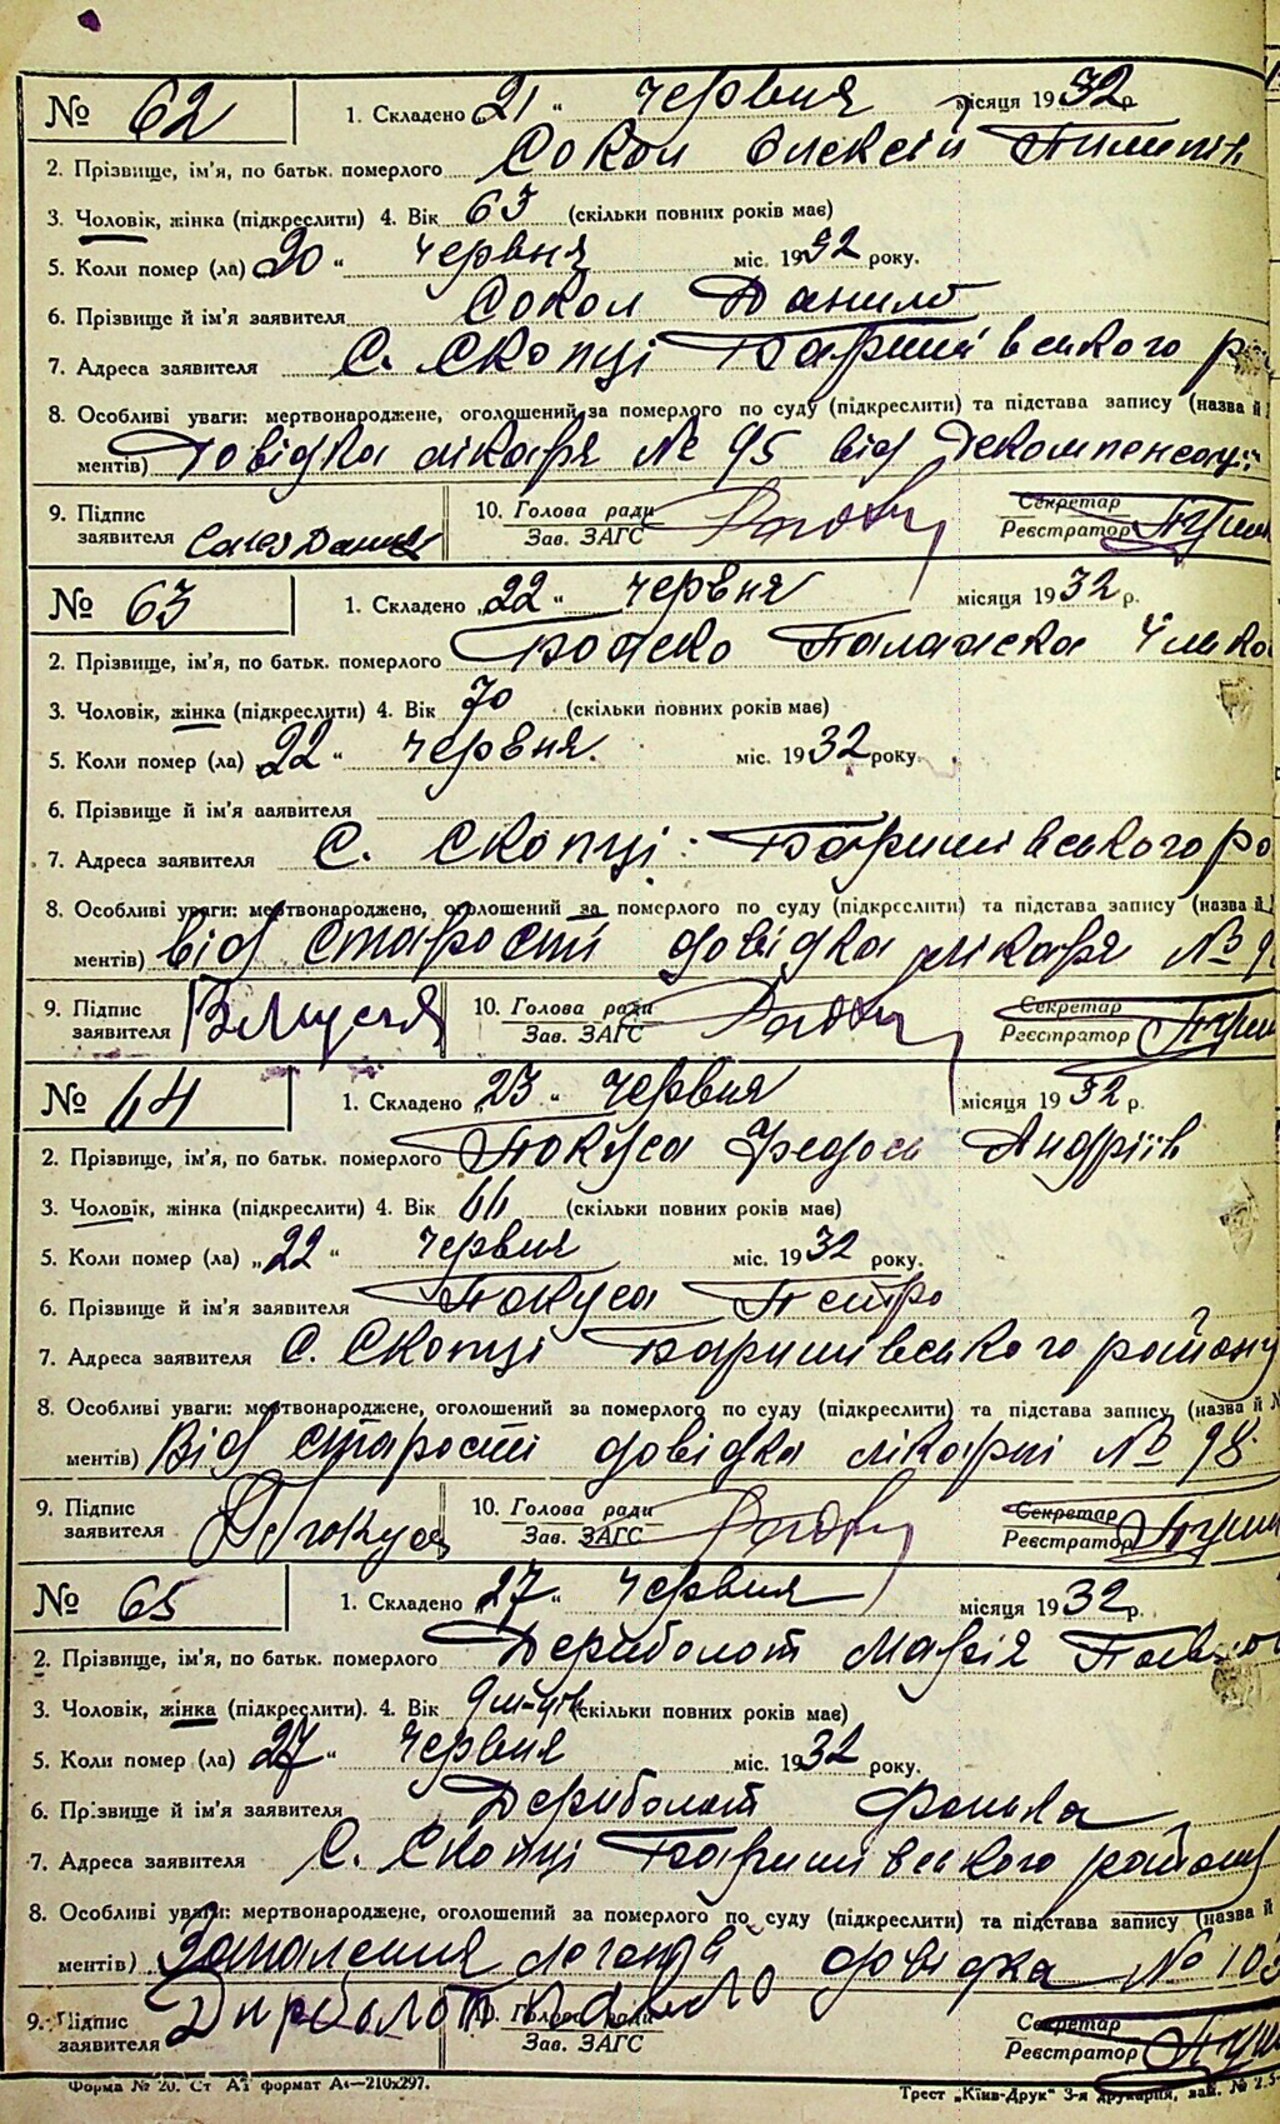 № 62 1. Складено „21“ червня місяця 1932 р.
2. Прізвище, ім'я, по батьк. померлого Сокол Олексій Пилипів
3. Чоловік, жінка (підкреслити) 4. Вік 63 (скільки повних років має)
5. Коли помер (ла) 20 “ червня міс. 1932 року.
6. Прізвище й ім'я заявителя Сокол Данило
7. Адреса заявителя С. Скопці Баришівського р
8. Особливі уваги: мертвонароджене, оголошений за померлого по суду (підкреслити) та підстава запису (назва й
ментів) Довідка лікаря № 95 від Декомпенсації
9. Підпис заявителя Сокол Данило 10. Голова ради Зав. ЗАГС Секретар Реєстратор
№ 63 1. Складено „22“ червня місяця 1932 р.
2. Прізвище, ім'я, по батьк. померлого Палажка Ілько
3. Чоловік, жінка (підкреслити) 4. Вік 70 (скільки повних років має)
5. Коли помер (ла) 22 “ червня. міс. 1932 року.
6. Прізвище й ім'я заявителя
7. Адреса заявителя С. Скопці Баришівського ро
8. Особливі уваги: мертвонароджене, оголошений за померлого по суду (підкреслити) та підстава запису (назва й
ментів) від старості довідка лікаря № 9
9. Підпис заявителя 10. Голова ради Зав. ЗАГС Секретар Реєстратор
№ 64 1. Складено „23“ червня місяця 1932 р.
2. Прізвище, ім'я, по батьк. померлого Покуса Федось Андріїв
3. Чоловік, жінка (підкреслити) 4. Вік 66 (скільки повних років має)
5. Коли помер (ла) „22“ червня міс. 1932 року.
6. Прізвище й ім'я заявителя Покуса Петро
7. Адреса заявителя С. Скопці Баришівського району
8. Особливі уваги: мертвонароджене, оголошений за померлого по суду (підкреслити) та підстава запису (назва й
ментів) Від старості довідка лікарні № 98
9. Підпис заявителя Покуса 10. Голова ради Зав. ЗАГС Секретар Реєстратор
№ 65 1. Складено „27“ червня місяця 1932 р.
2. Прізвище, ім'я, по батьк. померлого Дериболот Марія
3. Чоловік, жінка (підкреслити). 4. Вік 9 м-ців (скільки повних років має)
5. Коли помер (ла) 27 “ червня міс. 1932 року.
6. Прізвище й ім'я заявителя Дериболот
7. Адреса заявителя С. Скопці Баришівського району
8. Особливі уваги: мертвонароджене, оголошений за померлого по суду (підкреслити) та підстава запису (назва й
ментів) Запалення легенів довідка № 103
9. Підпис заявителя Дириболот Павло 10. Голова ради Зав. ЗАГС Секретар Реєстратор
Форма № 20. Ст А₄ формат А₄—210х297. Трест „Київ-Друк“ 3-я друкарня, зам. №